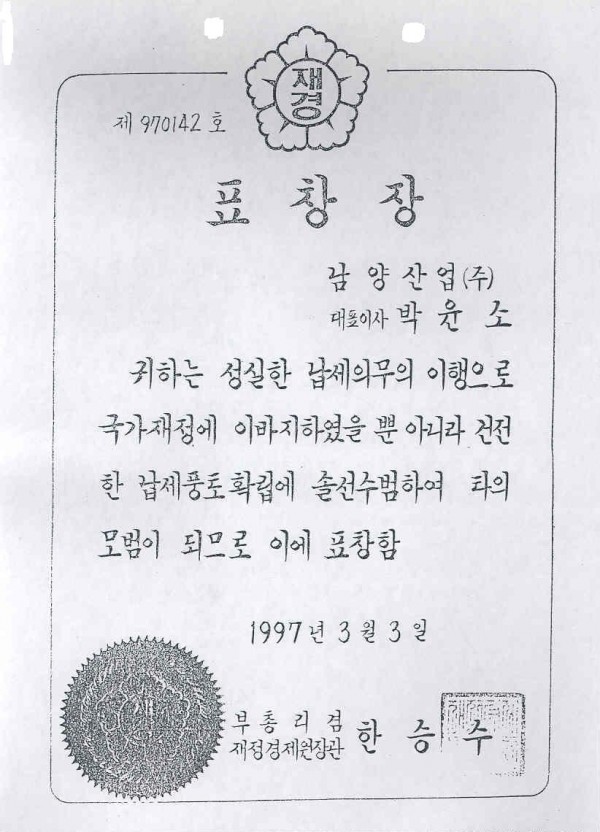 재경
제 970142 호
표창장
남양산업(주)
대표이사 박윤소
귀하는 성실한 납세의무의 이행으로
국가재정에 이바지하였을 뿐 아니라 건전
한 납세풍토확립에 솔선수범하여 타의
모범이 되므로 이에 표창함
1997년 3월 3일
부총리겸
재정경제원장관 한승수